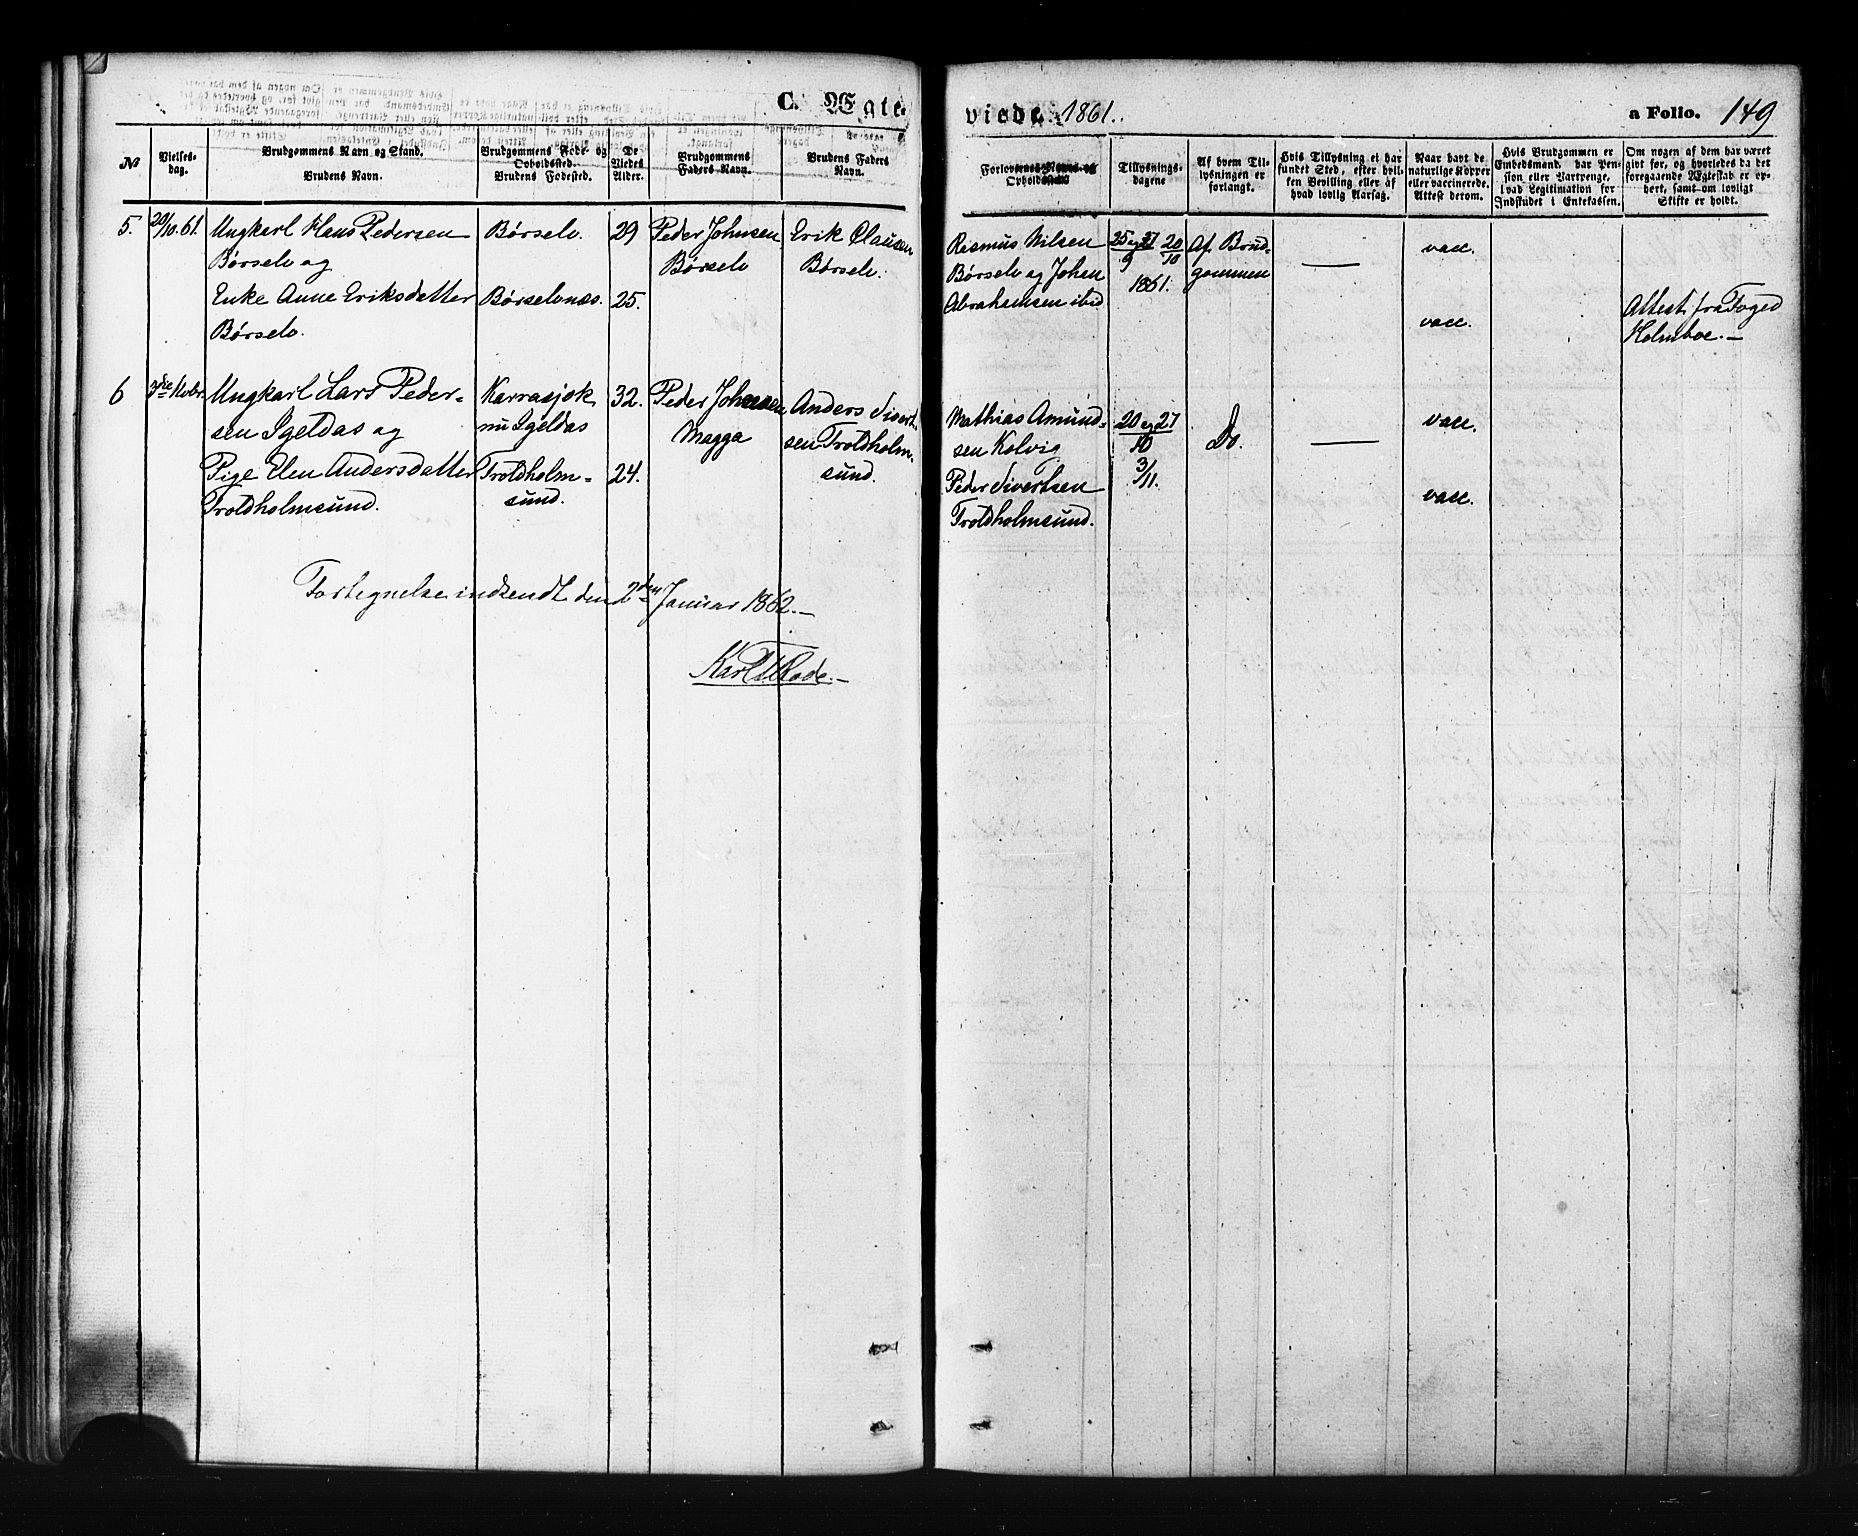 C. Ægte-
viede 1861.
a Folio. 149
№
Vielses-
dag.
Brudgommens Navn og Stand.
Brudens Navn.
Brudgommens Føde- og
Opholdssted.
Brudens Fødested.
De
Viedes
Alder.
Brudgommens
Faders Navn.
Brudens Faders
Navn.
Forlovernes Navne og
Opholdssted.
Tillysnings-
dagene
Af hvem Til-
lysningen er
forlangt.
Hvis Tillysning ei har
fundet Sted, efter hvil-
ken Bevilling eller af
hvad lovlig Aarsag.
Naar havt de
naturlige Kopper
eller vaccinerede.
Attest derom.
Hvis Brudgommen er
Embedsmand, har Pen-
sion eller Vartpenge,
hvad Legitimation for
Indskudet i Enkekassen.
Om nogen af dem har været
gift før, og hvorledes da det
foregaaende Ægteskab er op-
hørt, samt om lovligt
Skifte er holdt.
5.
20/10.61.
Ungkarl Hans Pedersen
Børselv og
Enke Anne Eriksdatter
Børselv.
Børselv.
Børselvnæs.
29
25.
Peder Johnsen
Børselv
Erik Clausen
Børselv.
Rasmus Nilsen
Børselv og Johan
Abrahamsen ibid
25 og 27 20
9 10
1861.
Af Brud-
gommen
—
vacc.
vacc.
Attest fra Foged
Holmboe.—
6
3die Novbr.
Ungkarl Lars Peder-
sen Igeldas og
Pige Elen Andersdatter
Troldholmsund.
Karrasjok
nu Igeldas
Troldholm-
sund.
32.
24.
Peder Johnsen
Magga
Anders Sivert-
sen Troldholm-
sund.
Mathias Amund-
sen Kolvig
Peder Sivertsen
Troldholmsund.
20 og 27
10
3/11.
Do.
—
vacc.
vacc.
Fortegnelse indsendt den 2den Januar 1862.—
Karl Rode.—